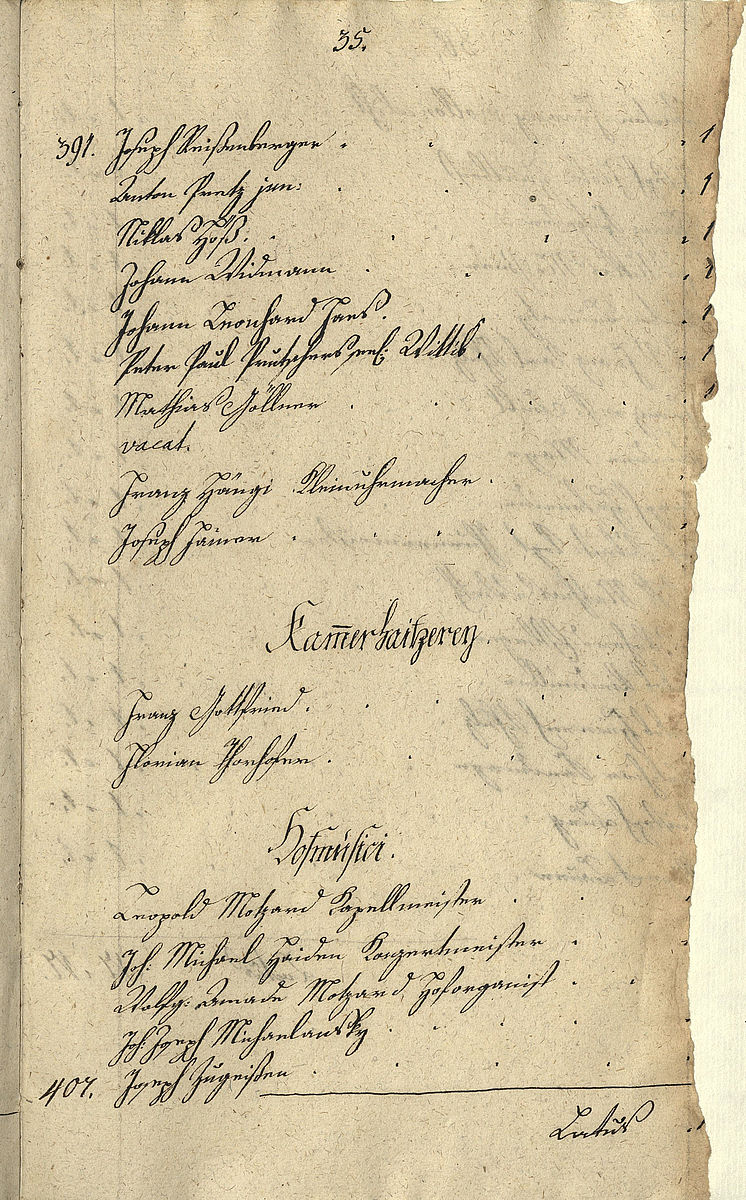 35.
391. Joseph Reißenberger . . . . 1
Anton Pretz jun: . . . . 1
Niklas Höß. . . . . 1
Johann Widmann . . . . 1
Johann Leonhard Haes. . 1
Peter Paul Prutschers seel: Wittib. . 1
Mathias Göllner . . . . 1
vacat.
Franz Hängi Kleinuhrmacher . . .
Joseph Jainer . . . . .
Kam̅erhaitzereÿ.
Franz Gottfried . . . . .
Florian Thorhofer . . . . .
Hofmusici.
Leopold Motzard Kapellmeister . . .
Joh: Michael Haiden Konzertmeister . .
Wolfg: Amade Motzard, Hoforganist . .
Joh: Joseph Michaelansky . . . .
407. Joseph Zugeißen . . . .
Latus . 1